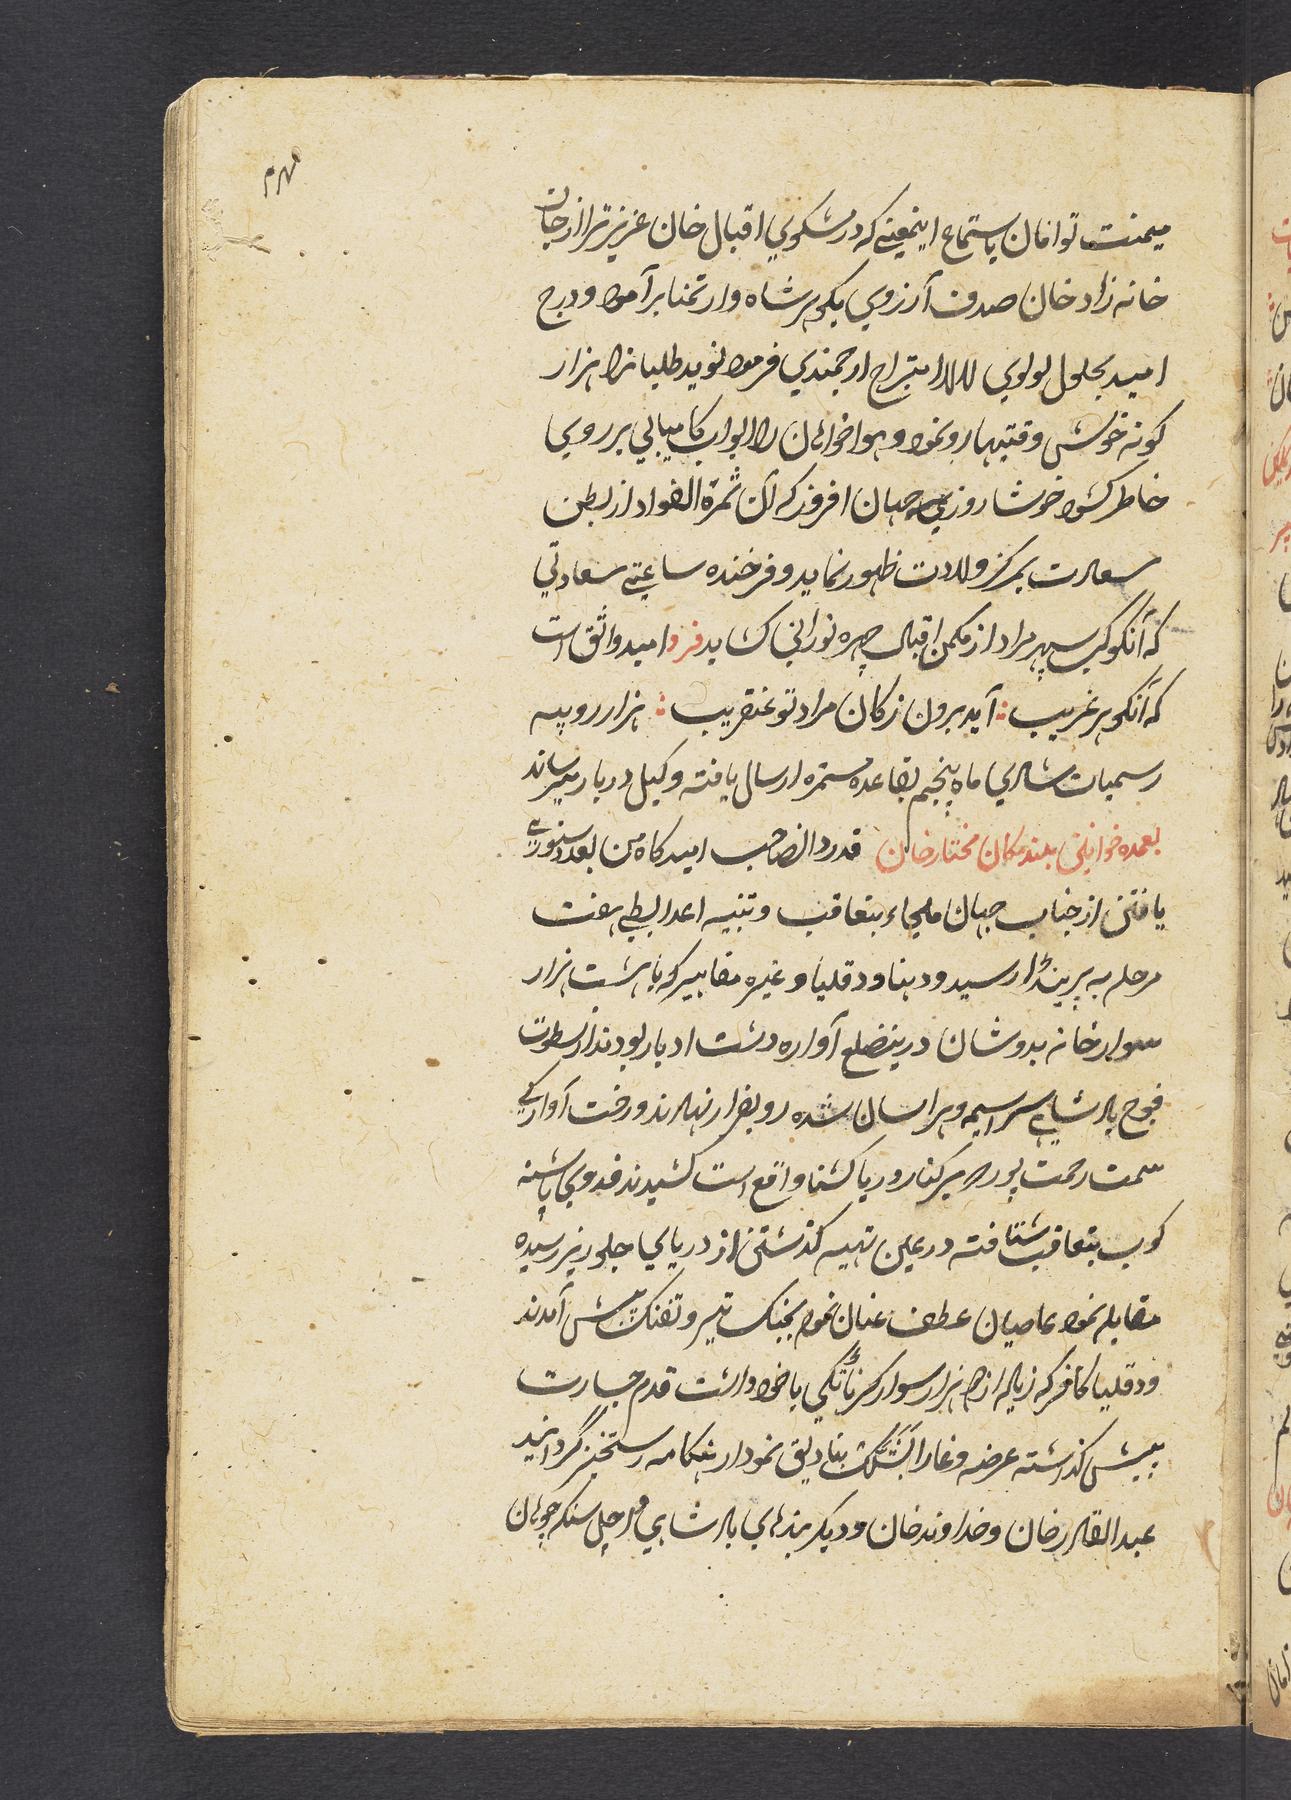 میمنت توامان باستماع اینمعنی که در مشکوی اقبال خان عزیزتر از جان
خانه زاد خان صدف آرزوی بگوهر شاهوار تمنا برآموده و درج
امید بحلول لولوی لالا امتزاج ارجمندی فرموده نوید طلبان را هزار
کونه خوش وقتیها رو نمود و هواخواهان را ابواب کامیابی بر روی
خاطر کشود خوشا روزی جهان افروز که آن ثمرة الفواد از بطن
سعادت بمرکز ولادت ظهور نماید و فرخنده ساعتی سعادتی
که آنکوکب سپهر مراد از مکمن اقبال چهره نورانی کشاید فرد امید واثق است
که آنگوهر غریب : آید برون ز کان مراد تو عنقریب : هزار روپیه
رسمیات شادی ماه پنجم بقاعده مستمره ارسال یافته وکیل دربار میرساند
بعمده خوانین بلند مکان مختار خان قدردان صاحب امیدگاه من بعد دستوری
یافتن از جناب جهان ملجاء بتعاقب و تنبیه اعدا بطی هفت
مرحله به پرینڈا رسید و دهنا و دقلیا و غیره مقاهیر که با هشت هزار
سوار خانه بدوشان درینضلع آواره دشت ادبار بودند از سطوت
فوج بادشاهی سراسیمه و هراسان شده رو بفرار نهادند و رخت آوارگی
سمت رحمت پوره بر کنار دریا کشنا واقع است کشیدند فدوی پاشنه
کوب بتعاقب شتافته در عین تهیه کذشتن از دریای جلوریز رسیده
مقابله نمود عاصیان عطف عنان نموده بجنک تیر و تفنک پیش آمدند
و دقلیا کافر که زیاده از ده هزار سوار کرناٹکی با خود داشت قدم جسارت
پیش کذاشته عرصه وغا را بشلک بنادیق نمودار هنکامه رستخیز گردانید
عبدالقادر خان و خداوند خان و دیکر بندهای بادشاهی